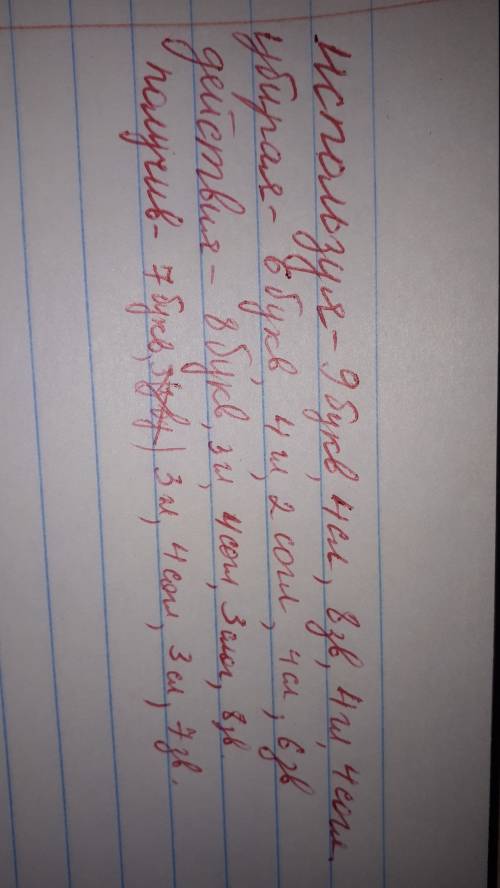 используя - 9 букв, 4 сл, 8 зв, 4 гл, 4 согл.
убирая - 6 букв, 4 гл, 2 согл, 4 сл, 6 зв
действия - 8 букв, 3 гл, 4 согл, 3 слог, 8 зв.
получив - 7 букв, 3 гл, 4 согл, 3 сл, 7 зв.